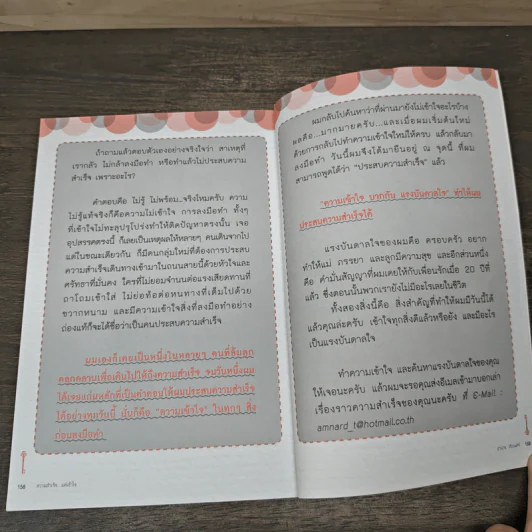 ถ้าถามแล้วตอบตัวเองอย่างจริงใจว่า สาเหตุที่
เรากลัว ไม่กล้าลงมือทำ หรือทำแล้วไม่ประสบความ
สำเร็จ เพราะอะไร?
คำตอบคือ ไม่รู้ ไม่พร้อม..จริงไหมครับ ความ
ไม่รู้แท้จริงก็คือความไม่เข้าใจ การลงมือทำ ทั้งๆ
ที่เข้าใจไม่ทะลุปรุโปร่งทำให้ติดปัญหาตรงนั้น เจอ
อุปสรรคตรงนี้ ก็เลยเป็นเหตุผลให้หลายๆ คนเดินจากไป
แต่ในขณะเดียวกัน ก็มีคนกลุ่มใหม่ที่ต้องการประสบ
ความสำเร็จเดินทางเข้ามาในถนนสายนี้ด้วยหัวใจและ
ศรัทธาที่มั่นคง ใครที่ไม่ยอมจำนนต่อแรงเสียดทานที่
ถาโถมเข้าใส่ ไม่ย่อท้อต่อหนทางที่เต็มไปด้วย
ขวากหนาม และมีความเข้าใจสิ่งที่ลงมือทำอย่าง
ถ่องแท้ก็จะได้ชื่อว่าเป็นคนประสบความสำเร็จ
ผมเองก็เคยเป็นหนึ่งในหลายๆ คนที่ล้มลุก
คลุกคลานเพื่อเดินไปให้ถึงความสำเร็จ จนวันหนึ่งผม
ได้เจอแก่นหลักที่เป็นคำตอบให้ผมประสบความสำเร็จ
ได้อย่างทุกวันนี้ นั่นก็คือ "ความเข้าใจ" ในทุกๆ สิ่ง
ก่อนลงมือทำ
158 ความสำเร็จ...
ผมกลับไปค้นหาว่าที่ผ่านมายังไม่เข้าใจอะไรบ้าง
ผลคือ...มากมายครับ...และเมื่อผมเริ่มต้นใหม่
ด้วยการกลับไปทำความเข้าใจใหม่ให้ครบ แล้วกลับมา
ลงมือทำ วันนี้ผมจึงได้มายืนอยู่ ณ จุดนี้ ที่ผม
สามารถพูดได้ว่า "ประสบความสำเร็จ" แล้ว
"ความเข้าใจ บวกกับ แรงบันดาลใจ" ทำให้ผม
ประสบความสำเร็จได้
แรงบันดาลใจของผมคือ ครอบครัว อยาก
ทำให้แม่ ภรรยา และลูกมีความสุข และอีกส่วนหนึ่ง
คือ คำมั่นสัญญาที่ผมเคยให้กับเพื่อนรักเมื่อ 20 ปีที่
แล้ว ซึ่งตอนนั้นพวกเรายังไม่มีอะไรเลยในชีวิต
ทั้งสองสิ่งนี้คือ สิ่งสำคัญที่ทำให้ผมมีวันนี้ได้
แล้วคุณล่ะครับ เข้าใจทุกสิ่งดีแล้วหรือยัง และมีอะไร
เป็นแรงบันดาลใจ
ทำความเข้าใจ และค้นหาแรงบันดาลใจของคุณ
ให้เจอนะครับ แล้วผมจะรอคุณส่งอีเมลเข้ามาบอกเล่า
เรื่องราวความสำเร็จของคุณนะครับ ที่ E-Mail :
amnard_t@hotmail.co.th